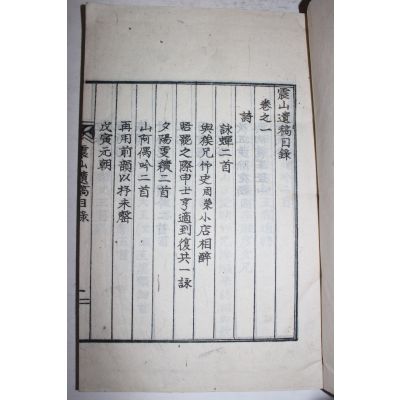 震山遺稿目錄
卷之一
詩
詠蟬二首
與族兄竹史周榮小店相醉
昭罷之際申士亨適到復共一詠
夕陽更積二首
山阿偶吟二首
再用前韻以抒未罄
戊寅元朝
震山遺稿目錄